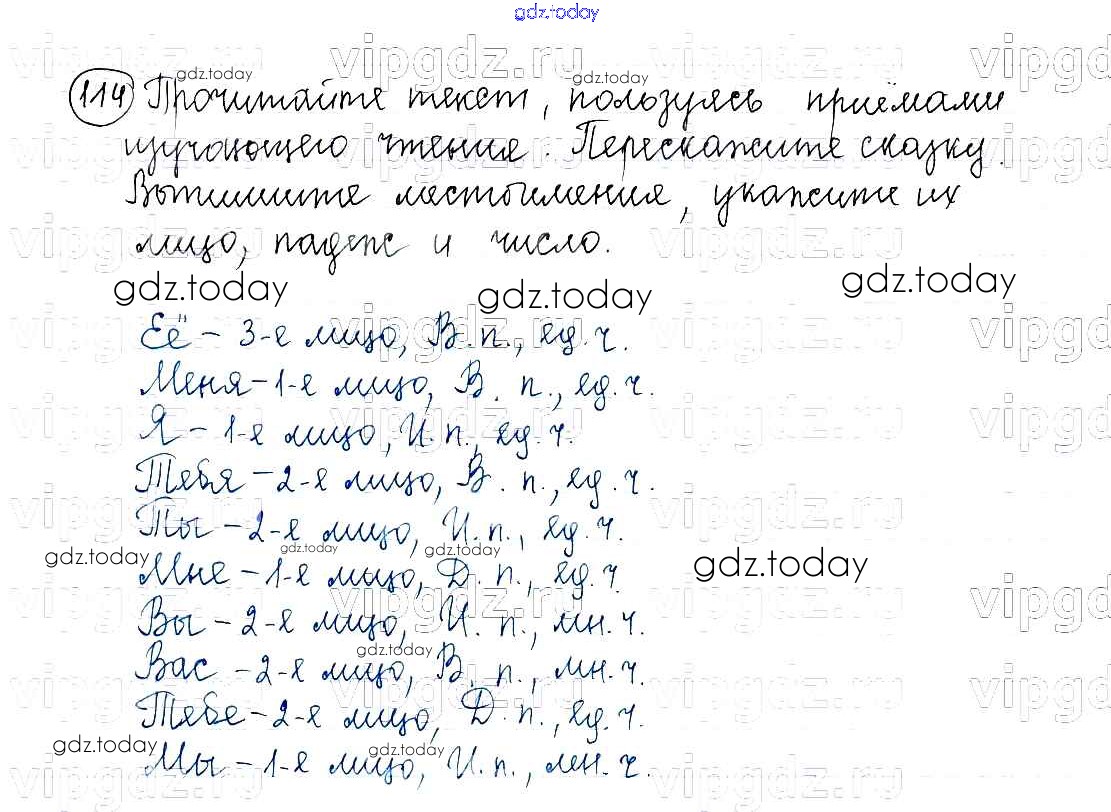 gdz.today
vipgdz.ru vipgdz.ru vipgdz.ru vipgd
gdz.today gdz.today
114 Прочитайте текст, пользуясь приёмами
изучающего чтения. Перескажите сказку.
Выпишите местоимения, укажите их
лицо, падеж и число.
gdz.today gdz.today gdz.today
Её - 3-е лицо, В. п., ед. ч.
Меня - 1-е лицо, В. п., ед. ч.
Я - 1-е лицо, И. п., ед. ч.
Тебя - 2-е лицо, В. п., ед. ч.
Ты - 2-е лицо, И. п., ед. ч.
gdz.today gdz.today gdz.today gdz.today
Мне - 1-е лицо, Д. п., ед. ч.
Вы - 2-е лицо, И. п., мн. ч.
gdz.today
Вас - 2-е лицо, В. п., мн. ч.
Тебе - 2-е лицо, Д. п., ед. ч.
gdz.today gdz.today
Мы - 1-е лицо, И. п., мн. ч.